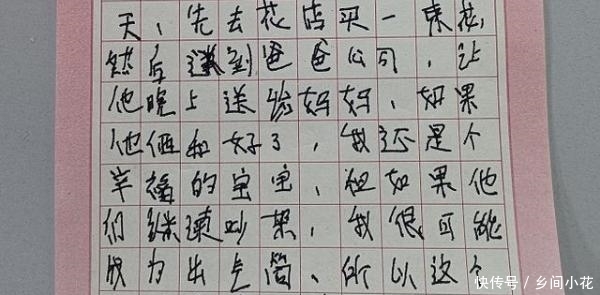 天，先去花店买一束花，
然后送到爸爸公司，让
他晚上送给妈妈，如果
他俩和好了，我还是个
幸福的宝宝，但如果他
们继续吵架，我很可能
成为出气筒，所以这个
快传号 / 乡间小花